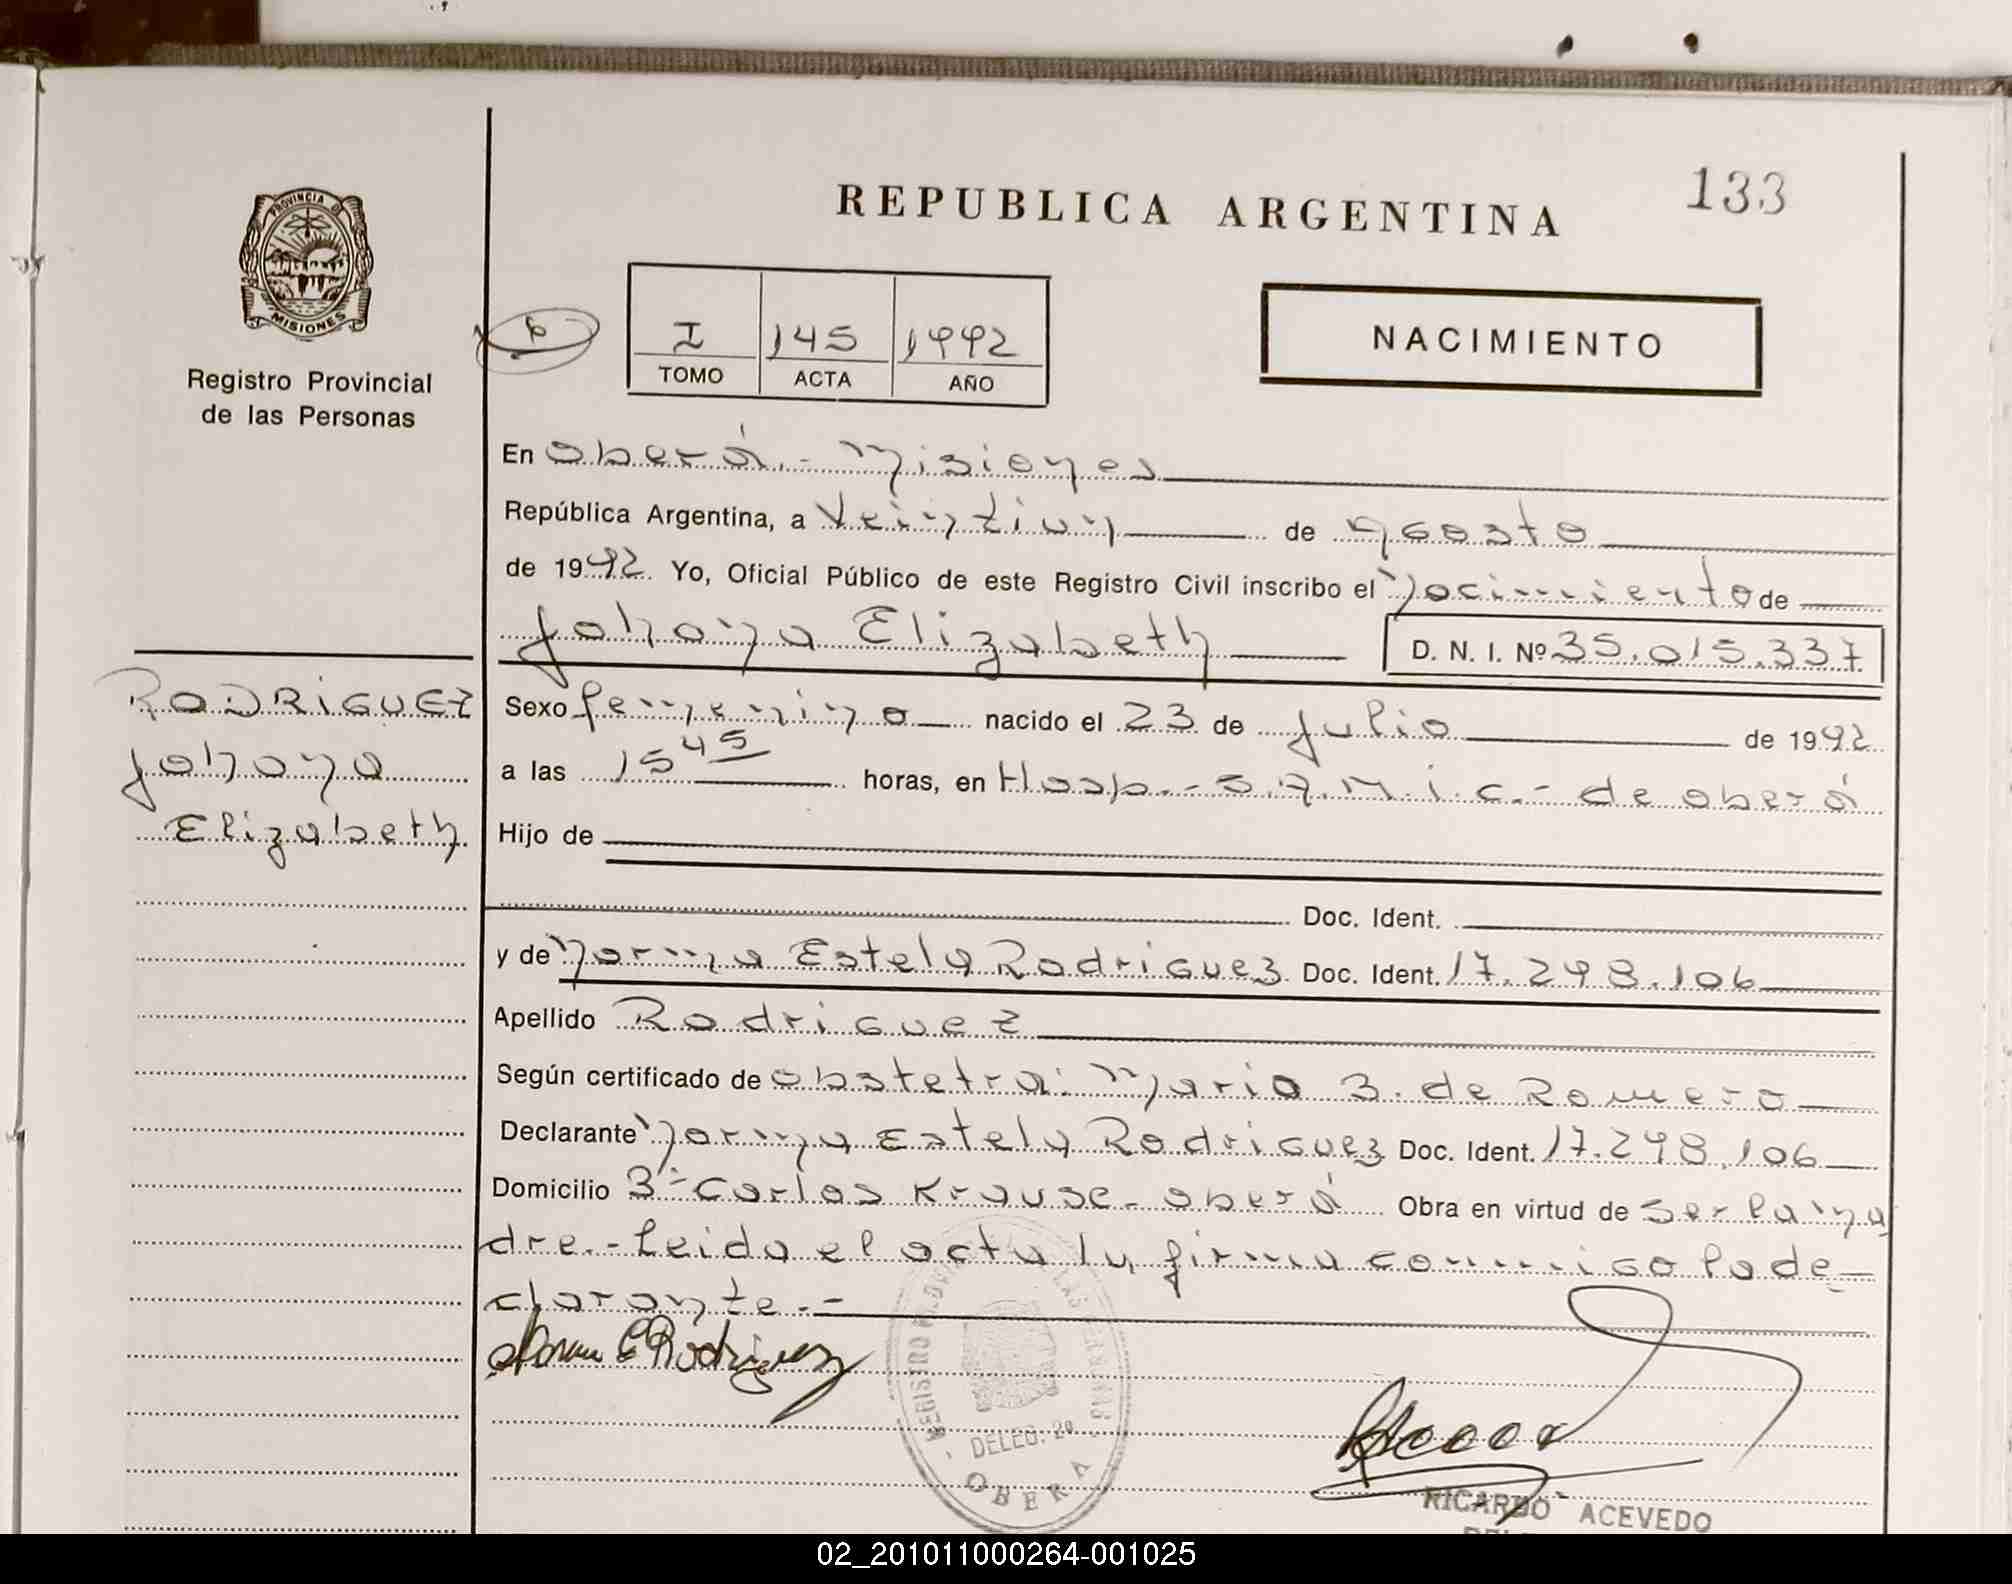 REPUBLICA ARGENTINA
133
PROVINCIA DE
MISIONES
Registro Provincial
de las Personas
I 145 1992
TOMO ACTA AÑO
NACIMIENTO
En Oberá.- Misiones
República Argentina, a Veintiun de agosto
de 1992. Yo, Oficial Público de este Registro Civil inscribo el Nacimiento de
Johana Elizabeth D. N. I. Nº 35.015.337
RODRIGUEZ
Johana
Elizabeth
Sexo femenino nacido el 23 de julio de 1992
a las 15 45 horas, en Hosp.- S.A.M.i.c.- de oberá
Hijo de
Doc. Ident.
y de Norma Estela Rodriguez Doc. Ident. 17.298.106
Apellido Rodriguez
Según certificado de obstetra: Maria B. de Romero
Declarante Norma Estela Rodriguez Doc. Ident. 17.298.106
Domicilio Bº Carlos Krause - oberá Obra en virtud de Ser la ma
dre.- Leida el acta la firma conmigo la de
clarante.-
Norma E Rodriguez
REGISTRO LAS PERSONAS
DELEG. 2ª
OBERA
RICARDO ACEVEDO
02_201011000264-001025